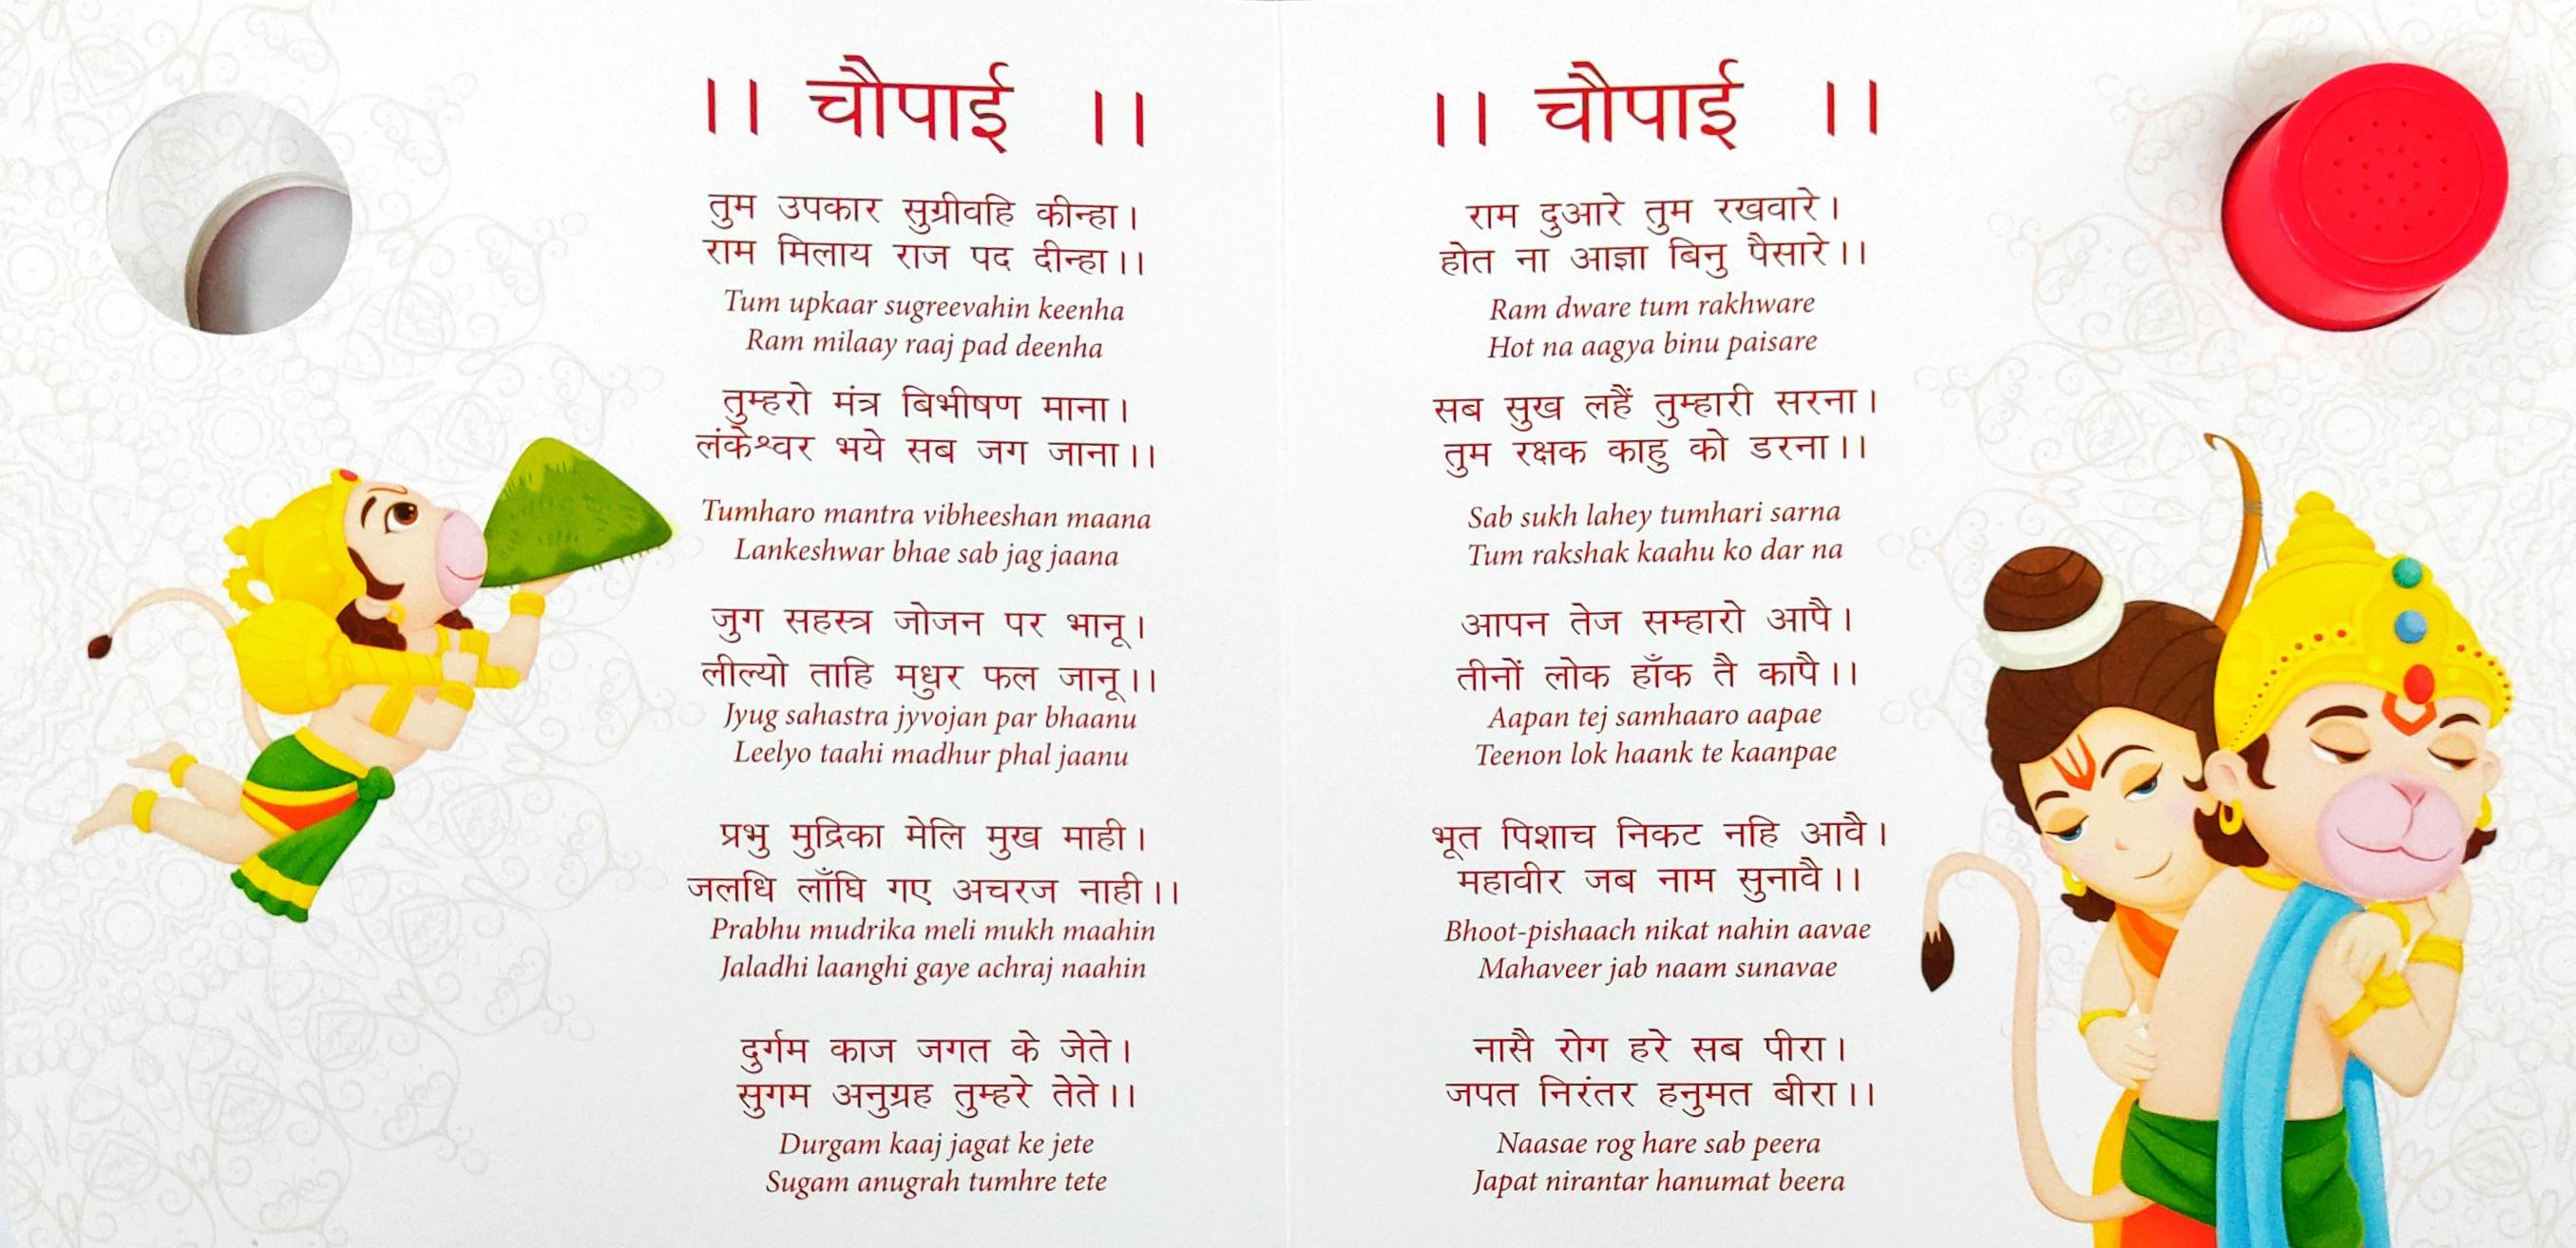 ।। चौपाई ।।
तुम उपकार सुग्रीवहि कीन्हा।
राम मिलाय राज पद दीन्हा।।
Tum upkaar sugreevahin keenha
Ram milaay raaj pad deenha
तुम्हरो मंत्र बिभीषण माना।
लंकेश्वर भये सब जग जाना।।
Tumharo mantra vibheeshan maana
Lankeshwar bhae sab jag jaana
जुग सहस्त्र जोजन पर भानू।
लील्यो ताहि मधुर फल जानू।।
Jyug sahastra jyvojan par bhaanu
Leelyo taahi madhur phal jaanu
प्रभु मुद्रिका मेलि मुख माही।
जलधि लाँघि गए अचरज नाही।।
Prabhu mudrika meli mukh maahin
Jaladhi laanghi gaye achraj naahin
दुर्गम काज जगत के जेते।
सुगम अनुग्रह तुम्हरे तेते।।
Durgam kaaj jagat ke jete
Sugam anugrah tumhre tete
।। चौपाई ।।
राम दुआरे तुम रखवारे।
होत ना आज्ञा बिनु पैसारे।।
Ram dware tum rakhware
Hot na aagya binu paisare
सब सुख लहैं तुम्हारी सरना।
तुम रक्षक काहु को डरना।।
Sab sukh lahey tumhari sarna
Tum rakshak kaahu ko dar na
आपन तेज सम्हारो आपै।
तीनों लोक हाँक तै कापै।।
Aapan tej samhaaro aapae
Teenon lok haank te kaanpae
भूत पिशाच निकट नहि आवै।
महावीर जब नाम सुनावै।।
Bhoot-pishaach nikat nahin aavae
Mahaveer jab naam sunavae
नासै रोग हरे सब पीरा।
जपत निरंतर हनुमत बीरा।।
Naasae rog hare sab peera
Japat nirantar hanumat beera